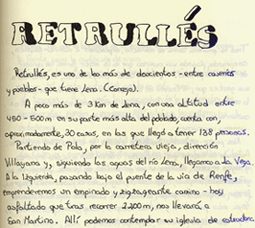 RETRULLÉS
Retrullés, es uno de los más de doscientos - entre caseríos
y pueblos - que tiene Lena. (Concejo).
A poco más de 3 Km de Lena, con una altitud entre
480 - 500 m en su parte más alta del poblado, cuenta con,
aproximadamente, 30 casas, en las que llegó a tener 138 personas.
Partiendo de Pola, por la carretera vieja, dirección
Villayana y, siguiendo las aguas del río Lena, llegamos a La Vega.
A la izquierda, pasando bajo el puente de la vía de Renfe,
emprenderemos un empinado y zigzageante camino - hoy
asfaltado que tras recorrer 2.200 m, nos llevará a
San Martino. Allí podemos contemplar su iglesia de estructura